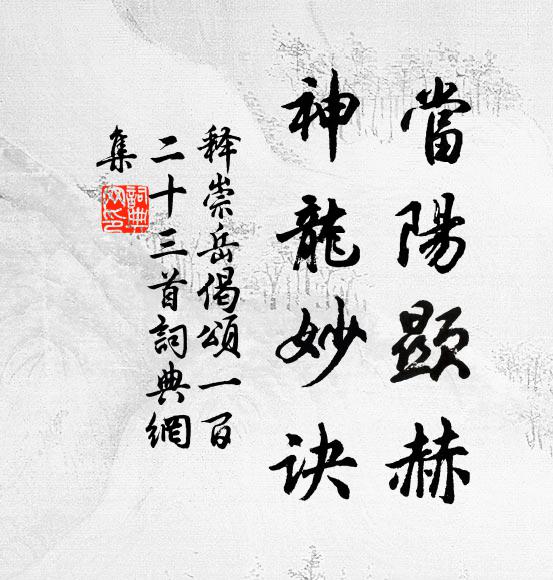 當陽顯赫
神龍妙诀
释崇岳偈頌一百
二十三首詞典網
集
詞典網印